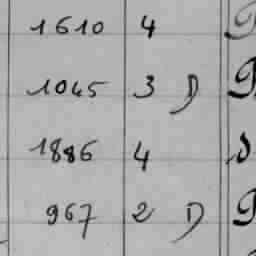 1610 4
1045 3 D
1886 4
967 2 D